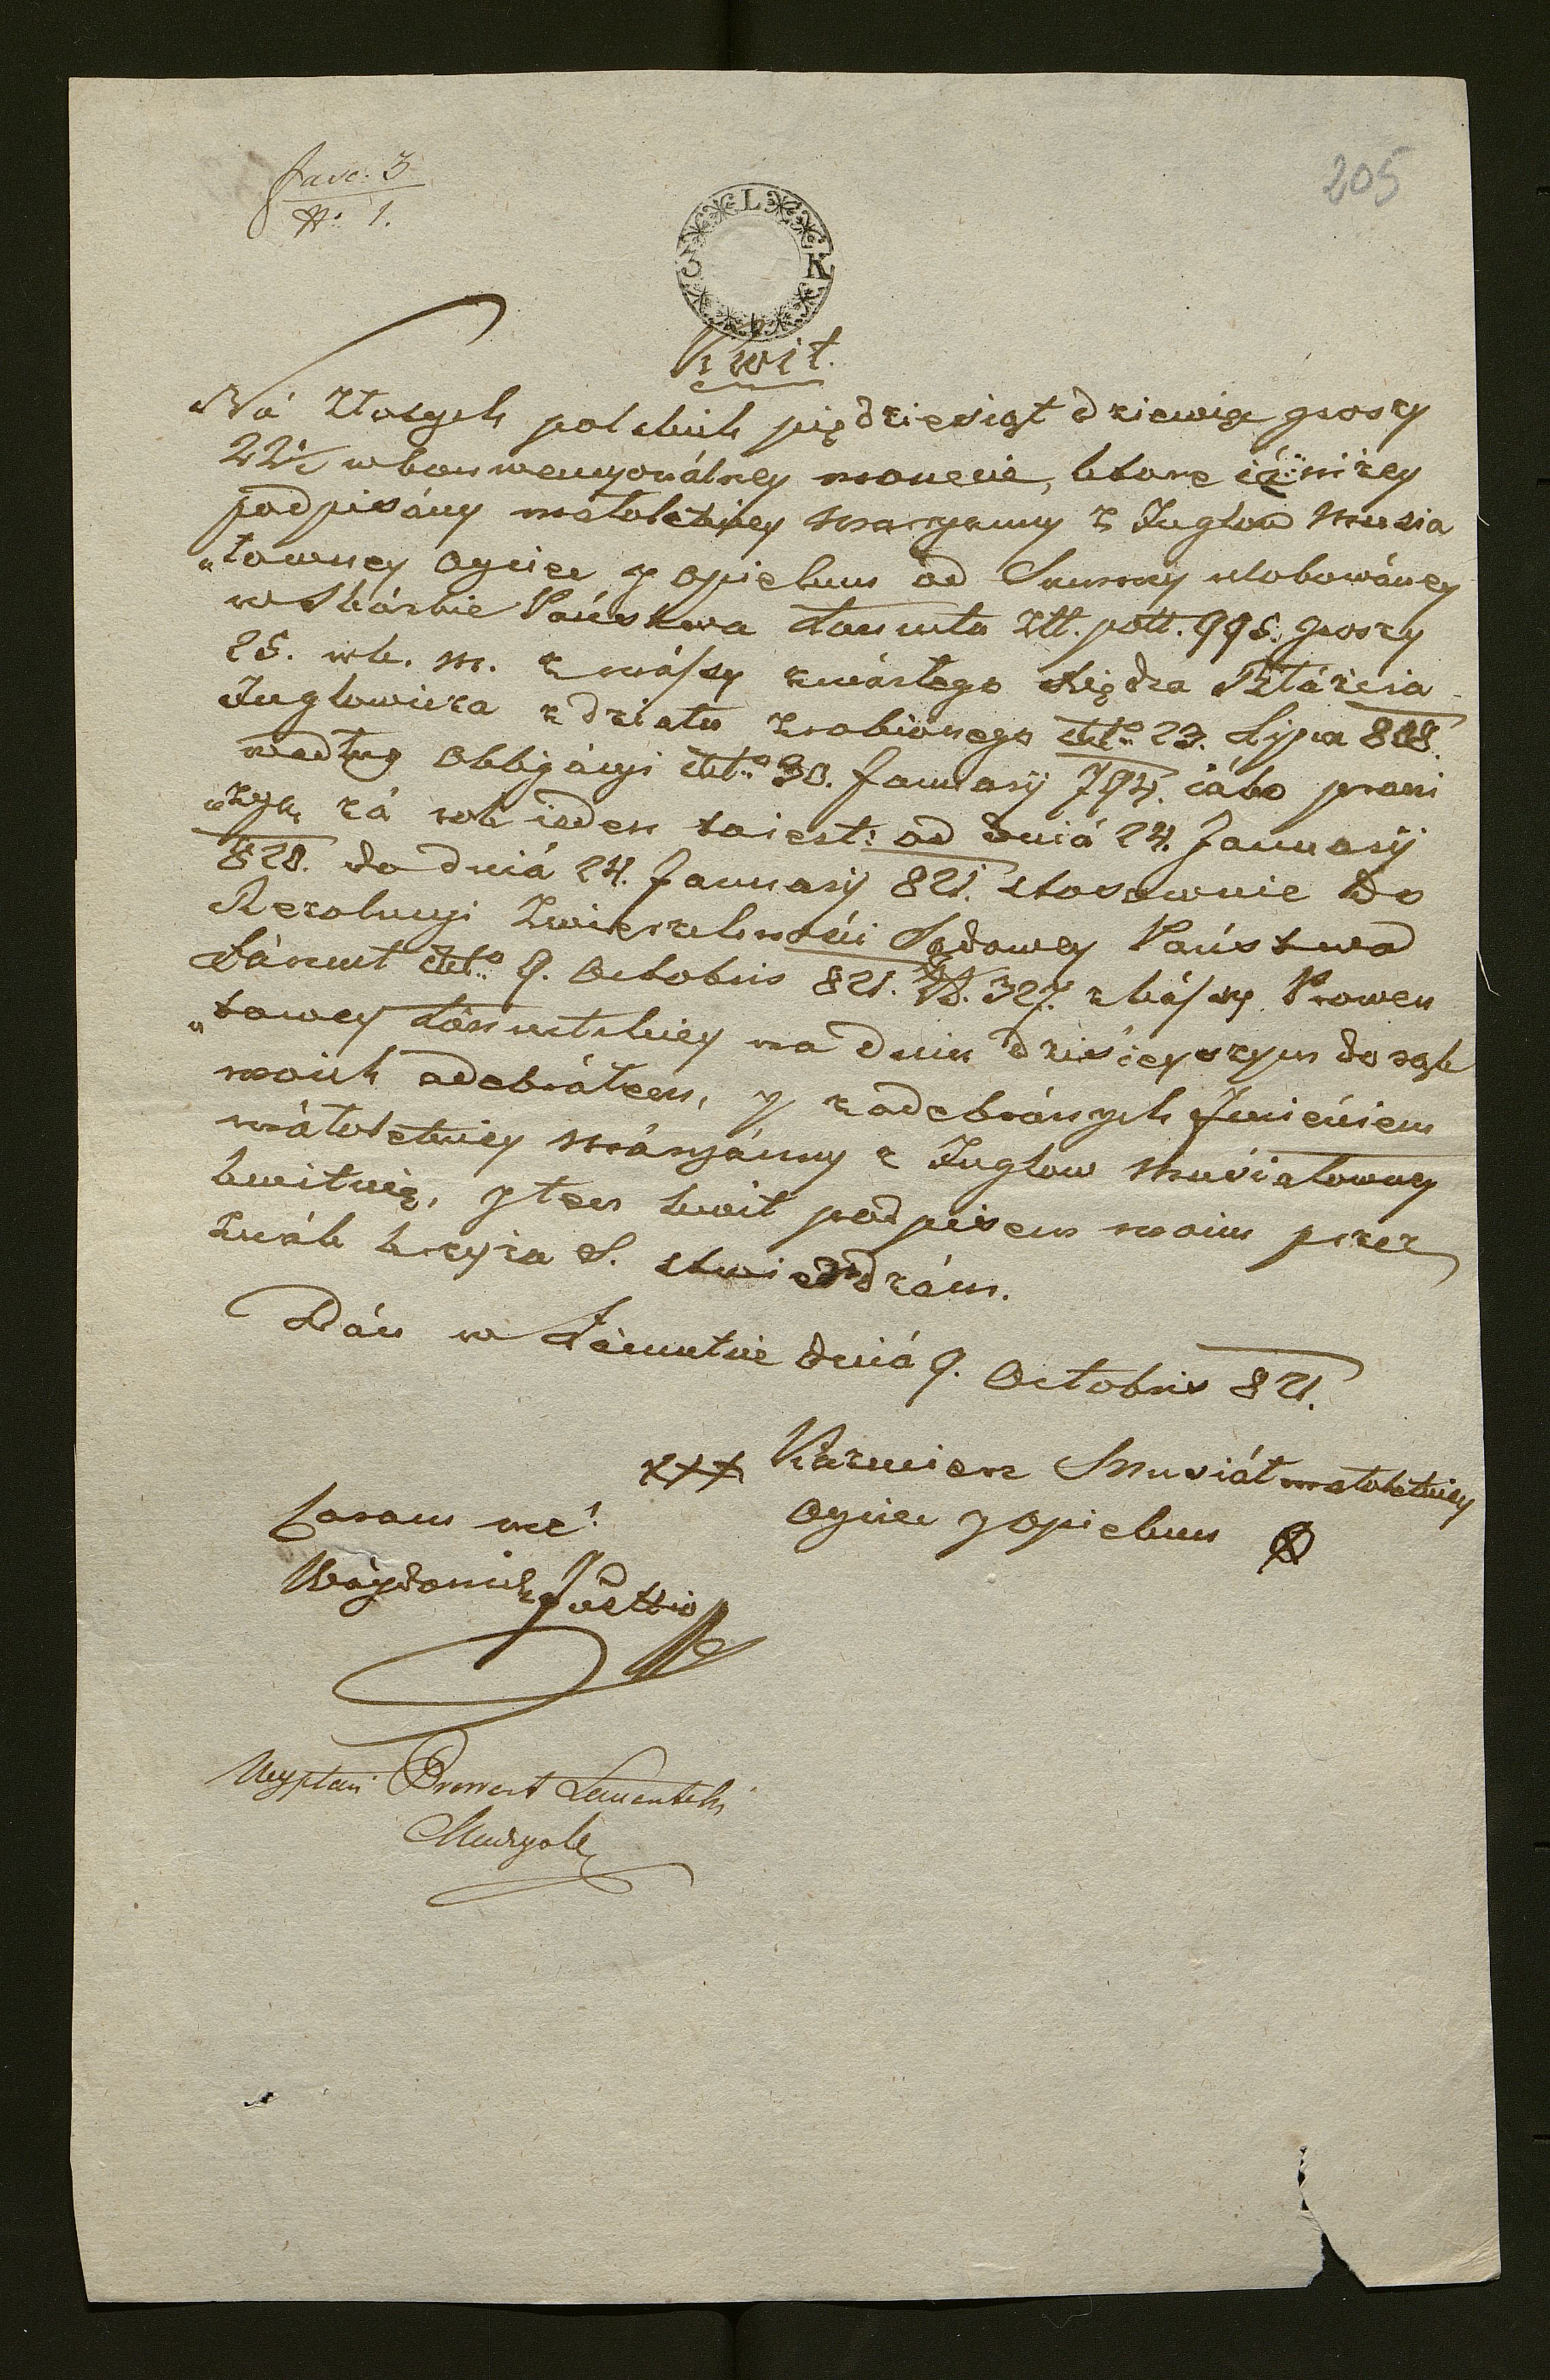 Fasc: 3
No 1.
205
L
3 K
Kwit.
Ná Złotych polskich piędziesiąt dziewięć groszy
22½ w konwencyonálney monecie, ktore iá niżey
podpisány małoletniey Maryanny z Juglow Musia
„łowney Oyciec y Opiekun od Summy ulokowáney
w Skárbie Páństwa Łancuta Złł. poll. 995. groszy
25. w k. m. z mássy zmárłego Księdza Błáżeia
Juglowicza z działu zrobionego ddto 23. Lipca 808.
według Obligácyi ddto 30. January 794. iáko prowi
„zyą zá rok ieden to iest: od dniá 24. January
820. do dniá 24. January 821. stosownie do
Rezolucyi Zwierzchności Sądowey Páństwa
Łáncut ddto 9. Octobris 821. No. 327. z kássy Prowen
„towey Łáncutskiey na dniu dzisieyszym do rąk
moich odebrałem, y z odebránych Jmieniem
máłoletniey Máryánny z Juglow Musiałowney
kwituię, y ten kwit podpisem moim przez
Znák krzyża S. stwierdzám.
Dán w Łáncucie dniá 9. Octobris 821.
xxx Kazmierz Musiáł małoletniey
Oyciec y Opiekun
Coram me!
Woydowicz Justtio
Wypłaci Prowent Lancutski